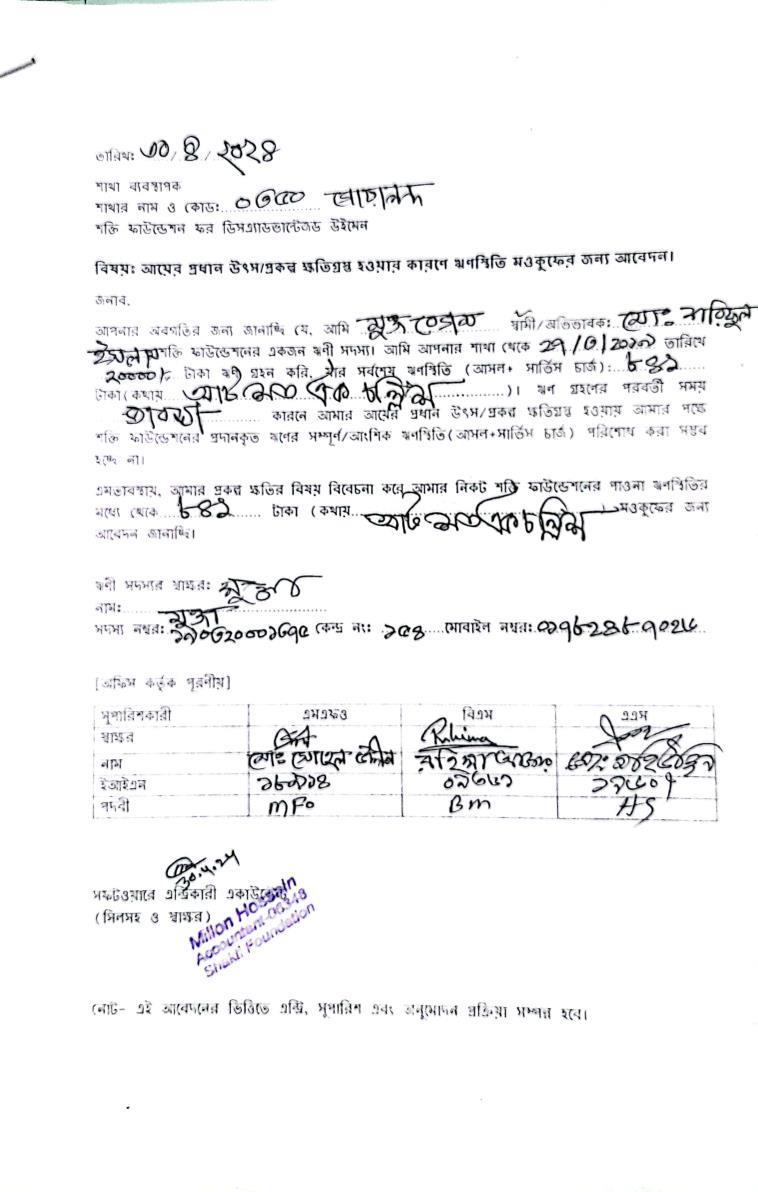 তারিখ: ৩০/৪/২০২৪
শাখা ব্যবস্থাপক
শাখার নাম ও কোড:
শক্তি ফাউন্ডেশন ফর ডিসএ্যাডভান্টেজড উইমেন
বিষয়: আয়ের প্রধান উৎস/প্রকল্প ক্ষতিগ্রস্ত হওয়ার কারণে ঋণস্থিতি মওকুফের জন্য আবেদন।
জনাব,
আপনার অবগতির জন্য জানাচ্ছি যে, আমি মুক্তা বেগম স্বামী/অভিভাবক: মোঃ আরিফুল
ইসলাম শক্তি ফাউন্ডেশনের একজন ঋণী সদস্য। আমি আপনার শাখা থেকে তারিখে
20000/- টাকা ঋণ গ্রহন করি, যার সর্বশেষ ঋণস্থিতি (আসল+ সার্ভিস চার্জ): ৮৪১
টাকা (কথায় আট শত এক চল্লিশ)। ঋণ গ্রহণের পরবর্তী সময়
কারনে আমার আয়ের প্রধান উৎস/প্রকল্প ক্ষতিগ্রস্ত হওয়ায় আমার পক্ষে
শক্তি ফাউন্ডেশনের প্রদানকৃত ঋণের সম্পূর্ণ/আংশিক ঋণস্থিতি(আসল+সার্ভিস চার্জ) পরিশোধ করা সম্ভব
হচ্ছে না।
এমতাবস্থায়, আমার প্রকল্প ক্ষতির বিষয় বিবেচনা করে আমার নিকট শক্তি ফাউন্ডেশনের পাওনা ঋণস্থিতির
মধ্যে থেকে ৮৪১ টাকা (কথায় আট শত এক চল্লিশ মওকুফের জন্য
আবেদন জানাচ্ছি।
ঋণী সদস্যর স্বাক্ষর: মুক্তা
নাম: মুক্তা
সদস্য নম্বর: কেন্দ্র নং: ১৫৪ মোবাইল নম্বর:
[অফিস কর্তৃক পূরণীয়]
সুপারিশকারী এমএফও বিএম এএস
স্বাক্ষর Ruhina
নাম
ইআইএন
পদবী MFO BM AS
30.4.24
সফটওয়ারে এন্ট্রিকারী একাউন্টেন্ট
(সিলসহ ও স্বাক্ষর)
Millon Hossain
Accountant-06348
Shakti Foundation
নোট- এই আবেদনের ভিত্তিতে এন্ট্রি, সুপারিশ এবং অনুমোদন প্রক্রিয়া সম্পন্ন হবে।